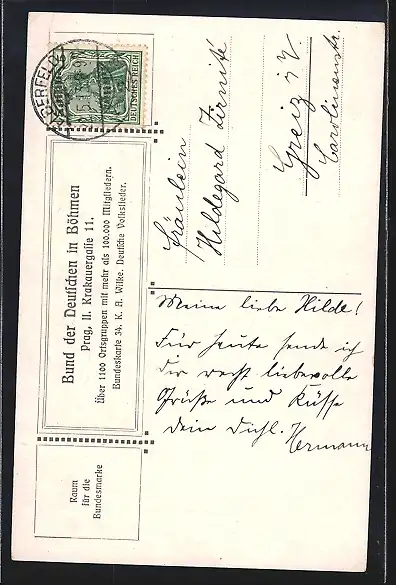 DEUTSCHES REICH
Bund der Deutschen in Böhmen
Prag, II. Krakauergasse 11.
Über 1100 Ortsgruppen mit mehr als 100.000 Mitgliedern.
Bundeskarte 34. K. A. Wilke. Deutsche Volkslieder.
Raum
für die
Bundesmarke
Fräulein
Hildegard Zirmité
Greiz i V.
Carolinenstr.
Meine liebe Hilde!
Für heute sende ich
dir recht liebevolle
Grüße und Küsse
dein Dichl.
Hermann